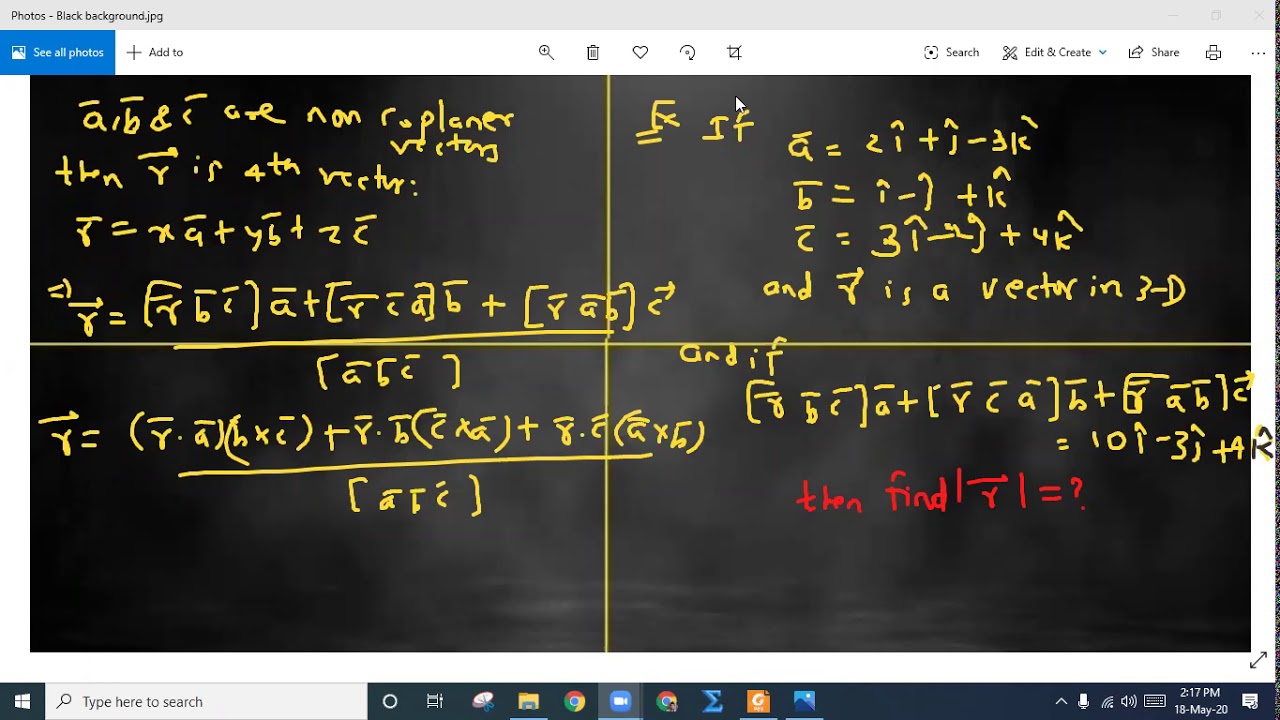 Photos - Black background.jpg
See all photos
Add to
Search
Edit & Create
Share
a̅, b̅ & c̅ are non coplaner vectors
then r⃗ is 4th vector:
r̅ = xa̅ + yb̅ + zc̅
=> r⃗ = [r̅ b̅ c̅] a̅ + [r̅ c̅ a̅] b̅ + [r̅ a̅ b̅] c⃗
[a̅ b̅ c̅]
r⃗ = (r̅ . a̅)(b × c̅) + r̅ . b̅ (c̅ × a̅) + r̅ . c̅ (a̅ × b̅)
[a̅ b̅ c̅]
Ex If
a̅ = 2î + ĵ - 3k̂
b̅ = î - ĵ + k̂
c̅ = 3î - 2ĵ + 4k̂
and r⃗ is a vector in 3-D
and if
[r̅ b̅ c̅] a̅ + [r̅ c̅ a̅] b̅ + [r̅ a̅ b̅] c⃗
= 10î - 3ĵ + 4k̂
then find |r⃗| = ?
Type here to search
2:17 PM
18-May-20